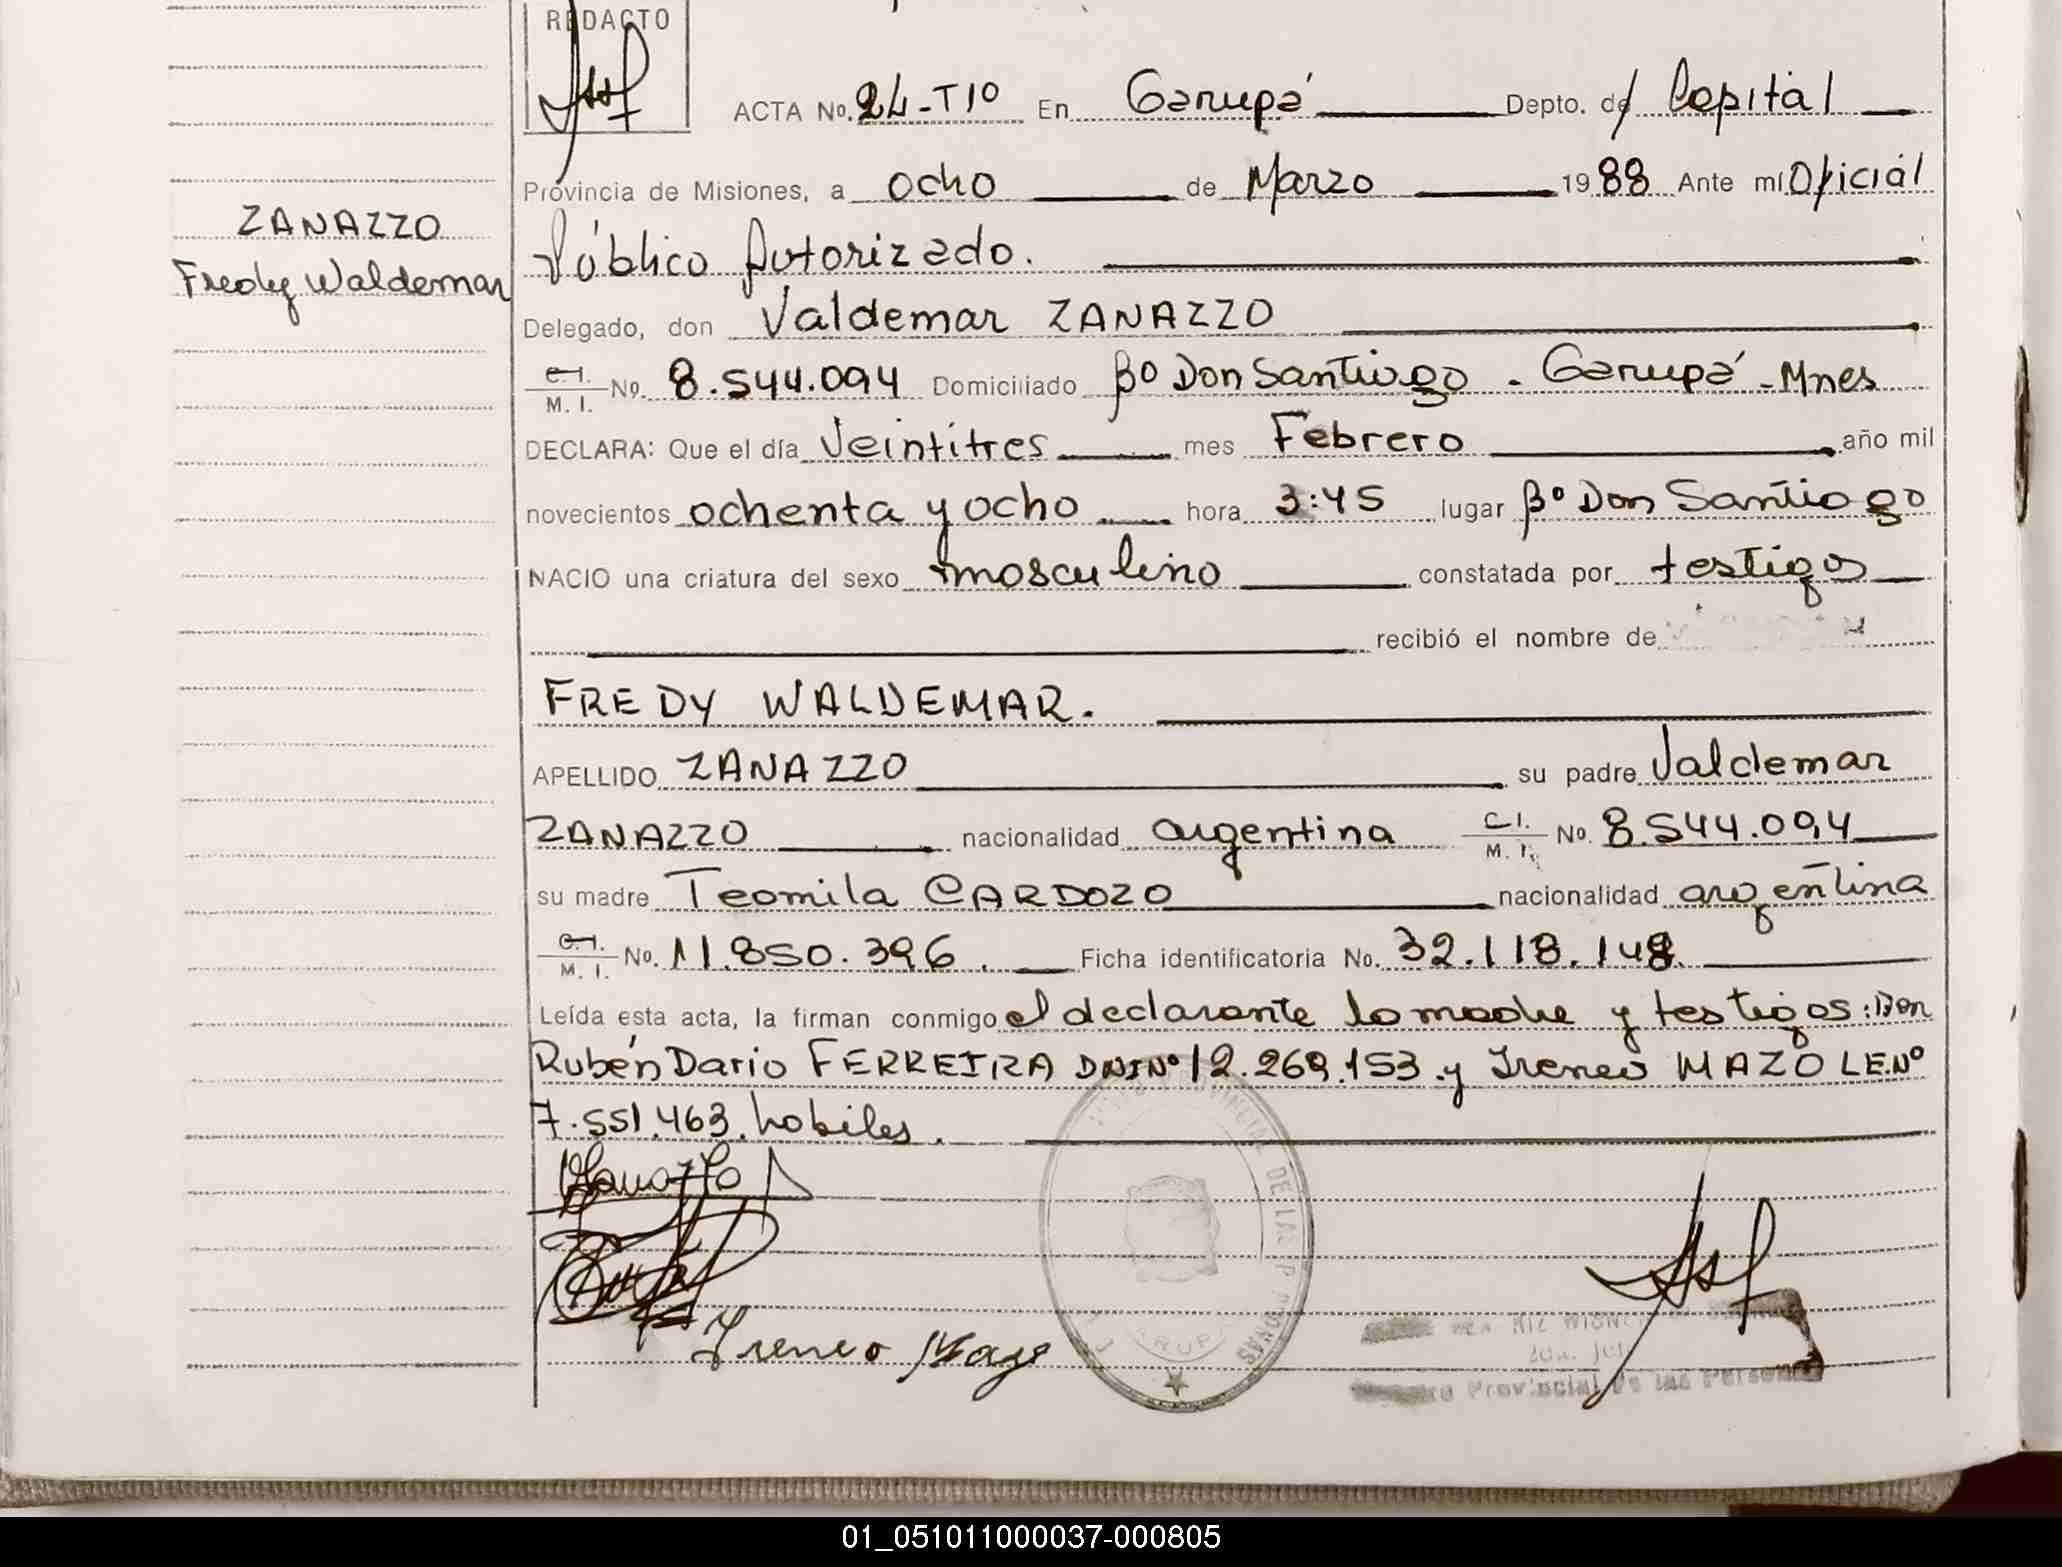 REDACTO
ACTA No. 24-T1º En Garupá Depto. de Capital
Provincia de Misiones, a ocho de Marzo 1988 Ante mí Oficial
ZANAZZO
Público Autorizado.
Fredy Waldemar
Delegado, don Valdemar ZANAZZO
C.I. M. I. No. 8.544.094 Domiciliado Bº Don Santiago - Garupá - Mnes
DECLARA: Que el día Veintitres mes Febrero año mil
novecientos ochenta y ocho hora 3:45 lugar Bº Don Santiago
NACIO una criatura del sexo masculino constatada por testigos
recibió el nombre de
FREDY WALDEMAR.
APELLIDO ZANAZZO su padre Valdemar
ZANAZZO nacionalidad argentina C.I. M. I. No. 8.544.094
su madre Teomila CARDOZO nacionalidad argentina
C.I. M. I. No. 11.850.396. Ficha identificatoria No. 32.118.148.
Leída esta acta, la firman conmigo el declarante la madre y testigos: Don
Rubén Dario FERREIRA DNI Nº 12.269.153 y Ireneo MAZO L.E. Nº
7.551.463. habiles.
Zanazzo
PROVINCIAL DE LAS PERSONAS
Ireneo Mazo
Provincial De las Personas
01_051011000037-000805